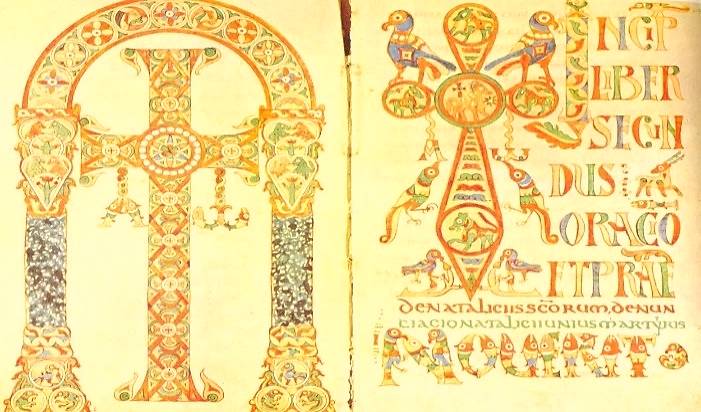 Α ω
Α ω
INCIP
LIBER
SECUN
DUS
ORACIO
ET PRAE
DENATALICIISSCORUM.DENUN
CIACIONATALICIIUNIUSMARTYRIS
NOUERIT